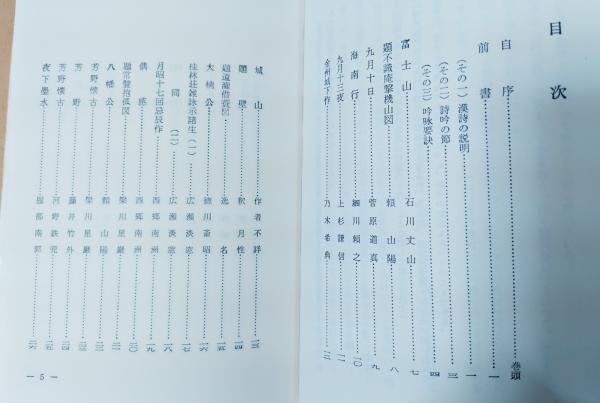 目次
自序……巻頭
前書……一
(その一) 漢詩の説明……一
(その二) 詩吟の節……三
(その三) 吟咏要訣……四
富士山……石川丈山……七
題不識庵撃機山図……頼山陽……八
九月十日……菅原道真……九
海南行……細川頼之……一〇
九月十三夜……上杉謙信……一一
金州城下作……乃木希典……一二
城山……作者不詳……一三
題壁……釈月性……一四
題道灌借蓑図……逸名……一五
大楠公……徳川斎昭……一六
桂林荘雑咏示諸生(一)……広瀬淡窓……一七
同(二)……広瀬淡窓……一八
月照十七回忌辰作……西郷南洲……一九
偶感……西郷南洲……二〇
題常盤抱孤図……梁川星巌……二一
八幡公……頼山陽……二二
芳野懐古……梁川星巌……二三
芳野……藤井竹外……二四
芳野懐古……河野鉄兜……二五
夜下墨水……服部南郭……二六
— 5 —